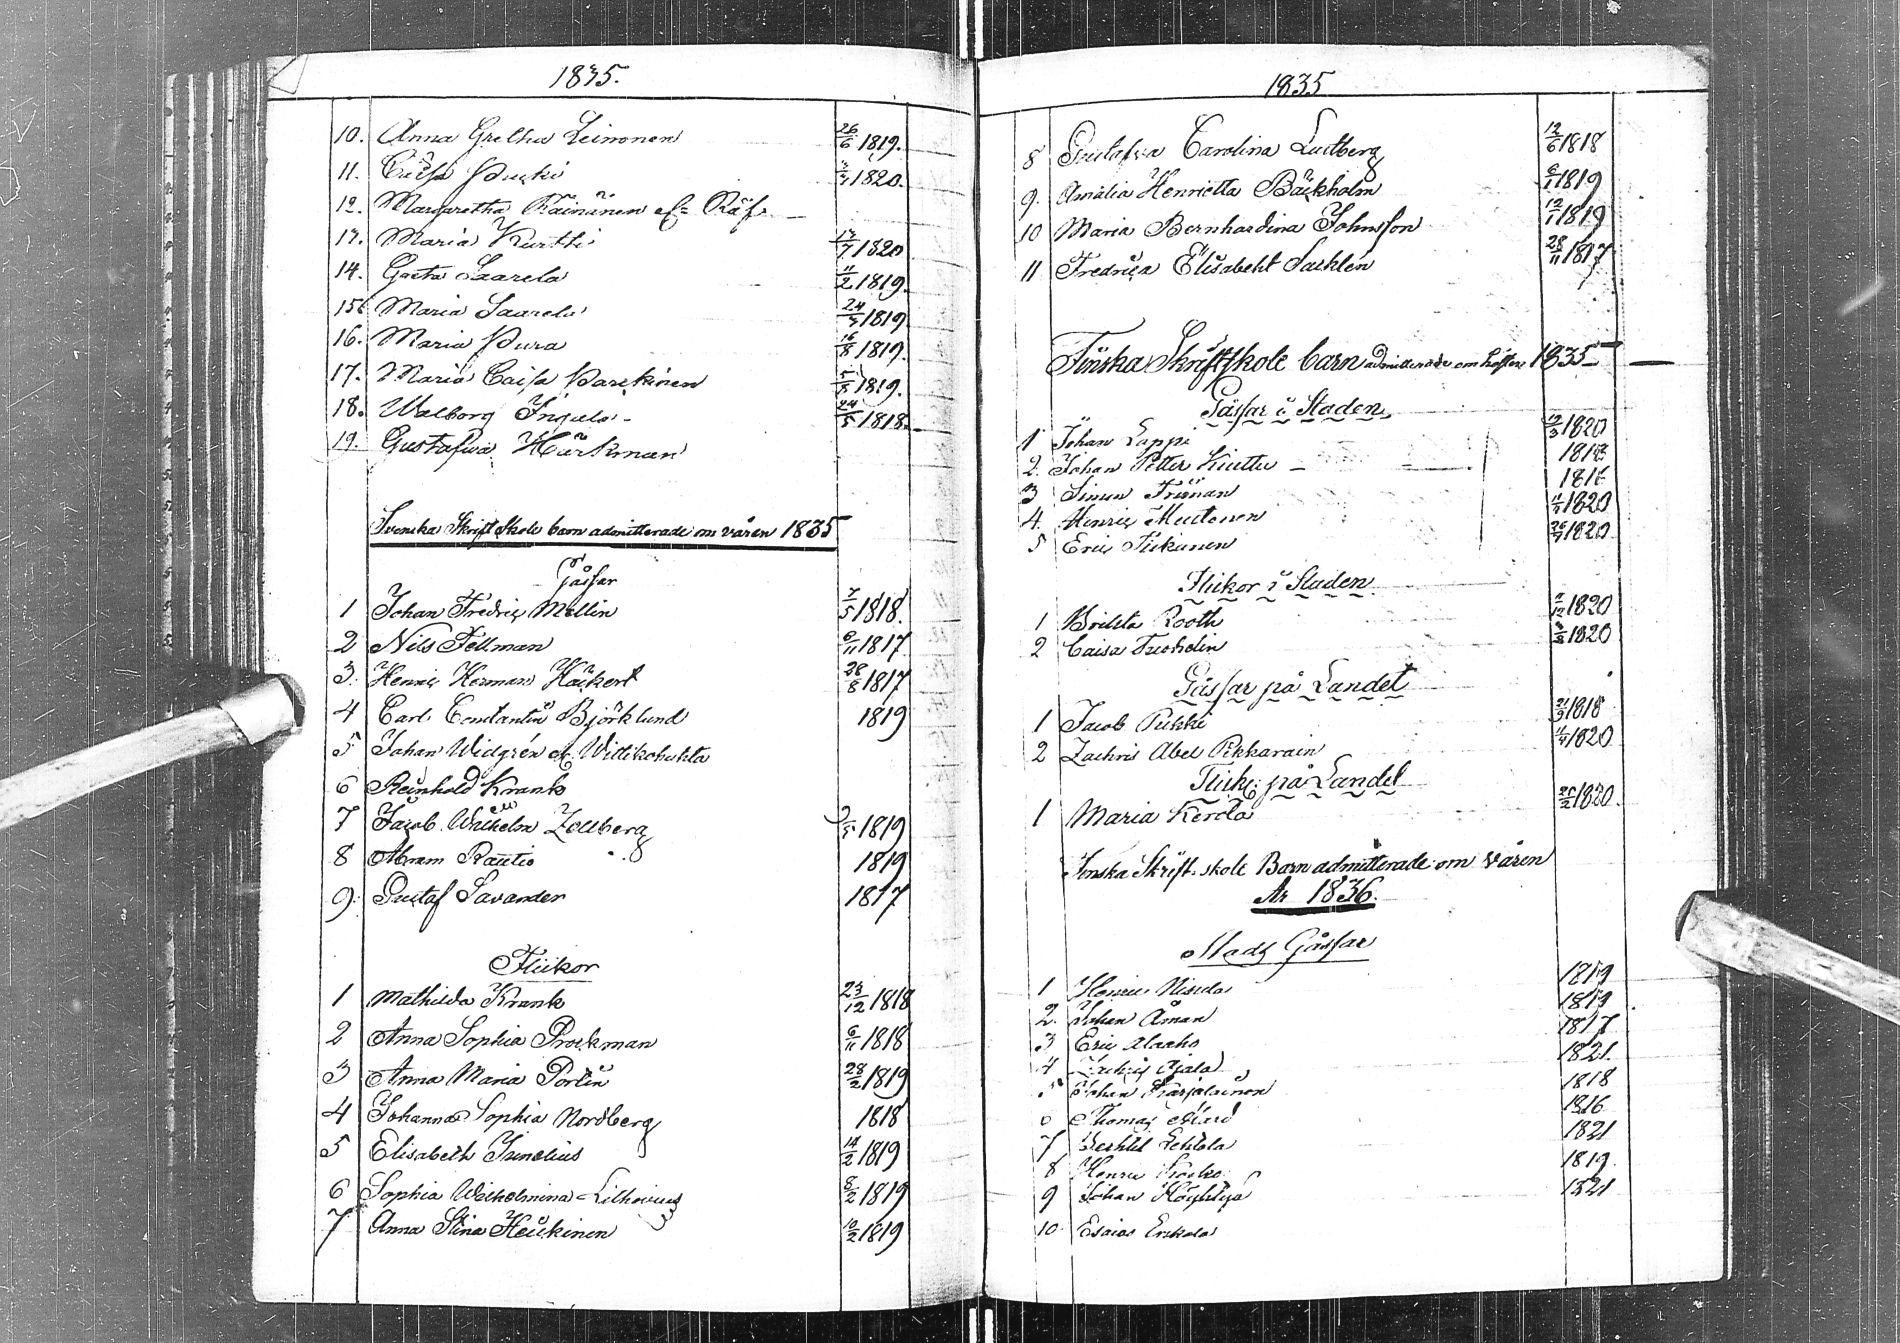 1835.
10. Anna Gretha Leinonen 26/6 1819.
11. Caisa 1820.
12. Margaretha Räinänen el. Räf
13. Maria Kurtti 13/7 1820
14. Greta Saarela 11/2 1819.
15 Maria Saarela 24/5 1819
16. Maria Pura 16/8 1819.
17. Maria Caisa Parckinen 5/8 1819.
18. Walborg Ingula 24/5 1818
19. Gustafwa Härkman
Svenska Skrift Skole barn admitterade om våren 1835
Gåssar
1 Johan Fredric Mellin 7/5 1818.
2 Nils Fellman 6/11 1817
3. Henric Herman Häckert 28/8 1817
4 Carl Constantin Björklund 1819
5 Johan Widgrén el. Wittikohukta
6 Reinhold Krank
7 Jacob Wilhelm Zellberg 1819
8 Abram Rautio 1819
9. Gustaf Savander 1817
Flickor
1 Mathilda Krank 23/12 1818
2 Anna Sophia Brockman 6/11 1818
3 Anna Maria Portin 28/2 1819
4 Johanna Sophia Nordberg 1818
5 Elisabeth Simelius 14/2 1819
6 Sophia Wilhelmina Lithovius 8/2 1819
7 Anna Stina Heickinen 10/2 1819
1835
8 Gustafva Carolina Lustberg 12/6 1818
9. Amalia Henrietta Bäckholm 6/1 1819
10 Maria Bernhardina Johnsson 12/1 1819
11 Fredrica Elisabeht Sachlén 28/11 1817
Finska Skriftskole barn admitterade om hösten 1835
Gåssar i Staden
1 Johan Lappi 12/3 1820
2. Johan Petter Kiuttu 1818
3 Simon Frisman 1816
4. Henric Mustonen 1820
5 Eric Tiskanen 1820
Flickor i Staden
1 Britta Rooth 1820
2 Caisa Frosterin 1820
Gåssar på Landet
1 Jacob Pukki 1818
2 Zachris Abel Pikkarain 1820
Flick. på Landet
1 Maria Kerola 1820
Finska Skrift-skole Barn admitterade om våren
År 1836.
Stads Gåssar
1 Henric Nissila 1819
2. Johan Åman 1819
3 Eric Alaaho 1817
4 Zachris Ojala 1821.
5 Johan Karjalainen 1818
6 Thomas Mård 1816
7 Berhtil Lehtola 1821
8 Henric 1819
9 Johan Höyhtyä 1821
10 Esaias Erkola